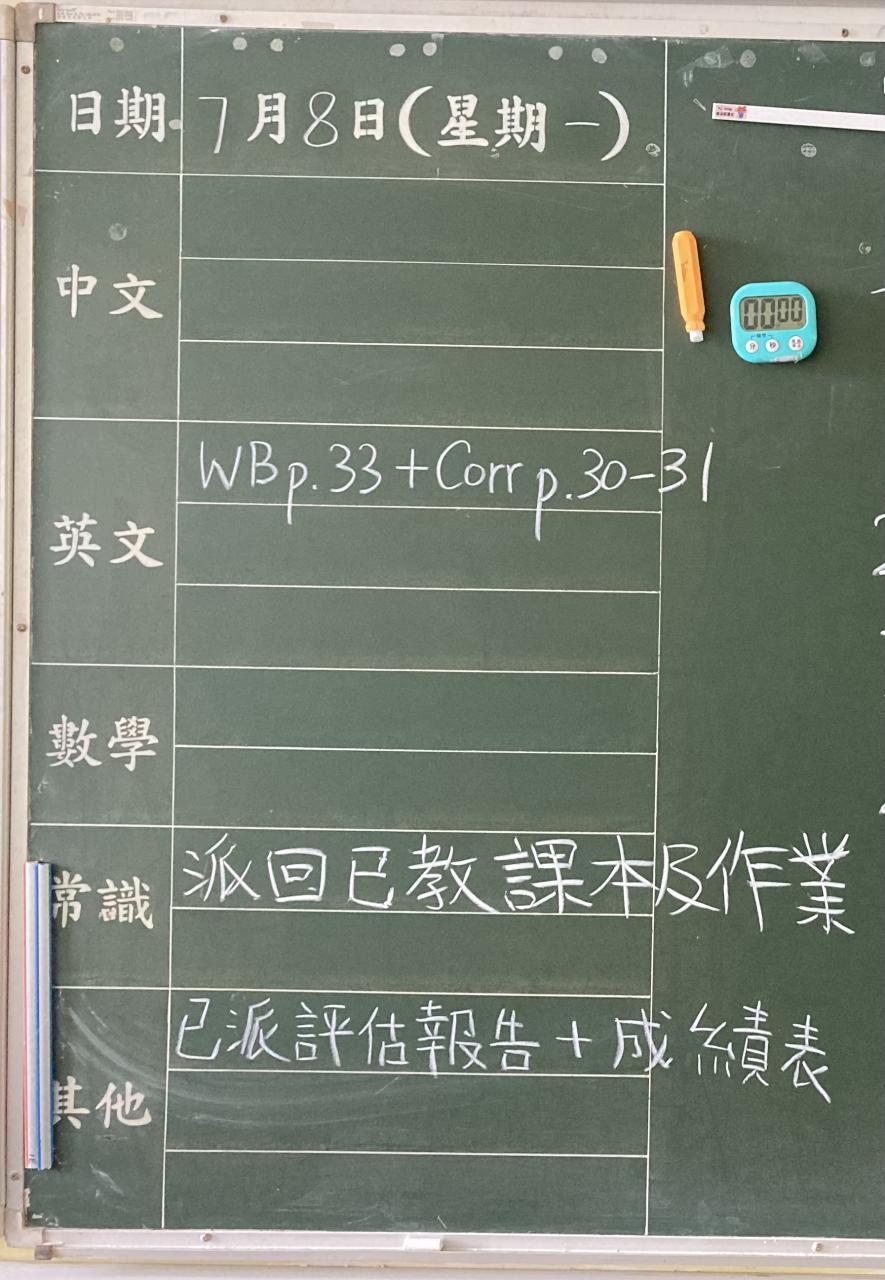 日期 7月8日(星期一)
00:00
分 秒
中文
英文 WB p.33 + Corr p.30-31
數學
常識 派回已教課本及作業
其他 已派評估報告 + 成績表